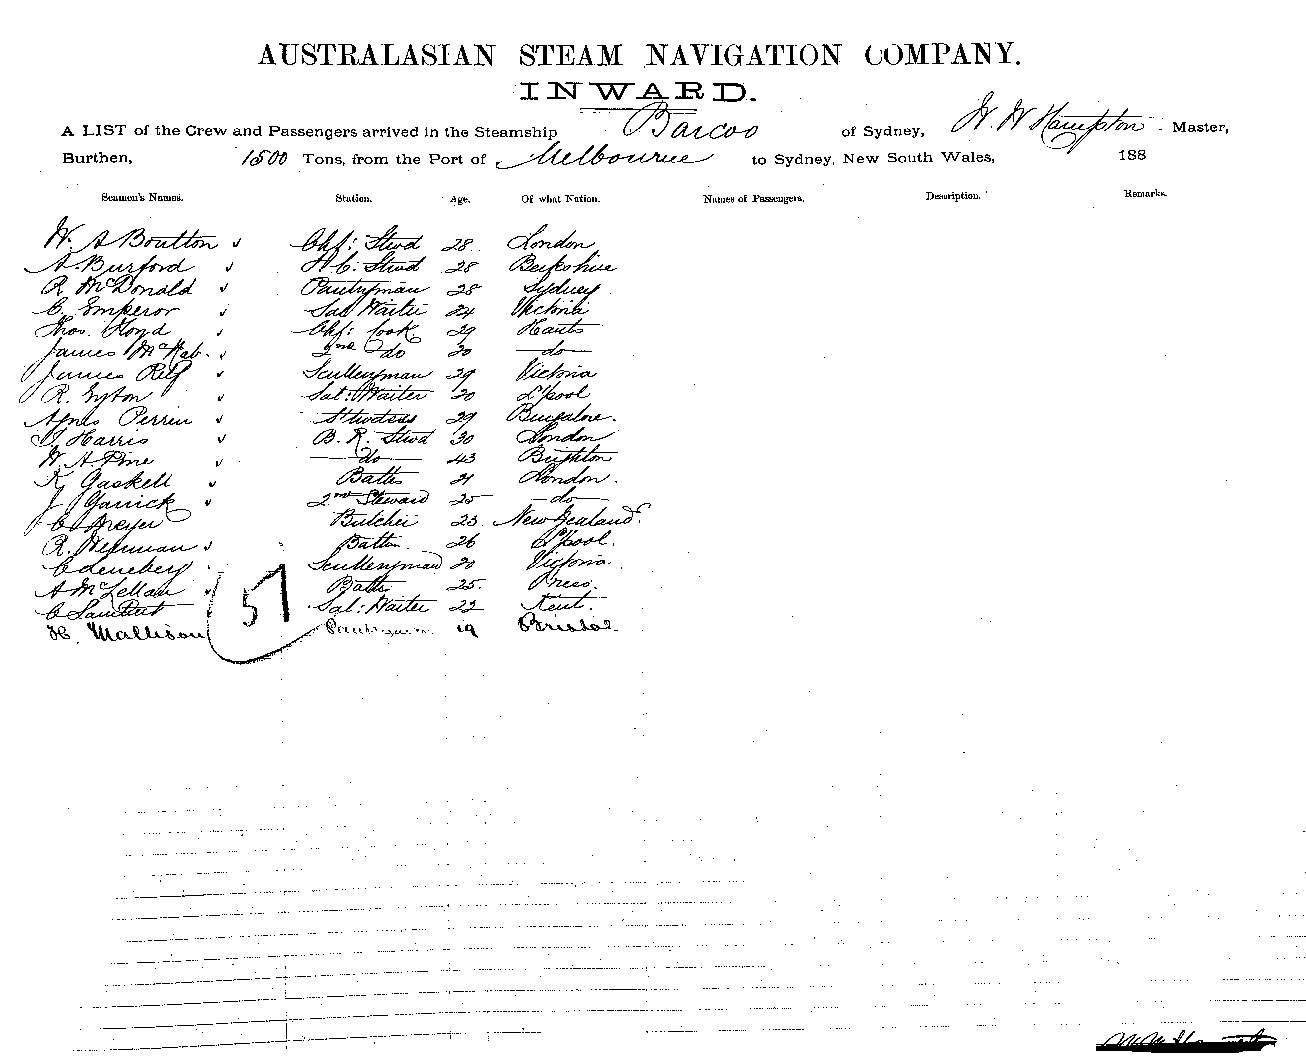 AUSTRALASIAN STEAM NAVIGATION COMPANY.
INWARD.
A LIST of the Crew and Passengers arrived in the Steamship Barcoo of Sydney, W. W Hampton Master,
Burthen, 1500 Tons, from the Port of Melbourne to Sydney, New South Wales, 188
Seamen's Names. Station. Age. Of what Nation. Names of Passengers. Description. Remarks.
W. A Boulton Chf: Stwd 28 London
A. Burford F. C. Stwd 28 Berkshire
R McDonald Pantryman 28 Sydney
C. Emperor Sal Waiter 24 Victoria
Thos. Floyd Chf: Cook 29 Hants
James McNab. 2nd do 30 do
James Relf Sculleryman 29 Victoria
R. Eyton Sal: Waiter 20 L'pool
Agnes Perrin Stwdess 29 Bungalore.
T Harris B. R. Stwd 30 London
W. A. Pine do 43 Brighton
K Gaskell Baths 21 London.
J Garrick 2nd Steward 25 do
C Meyer Butcher 23. New Zealand.
R. Wenman 26 L'pool.
Sculleryman 20 Victoria
A McLellan Baths 25.
C Sal: Waiter 22 Kent.
H. Mallison Pantryman 19 Bristol
57